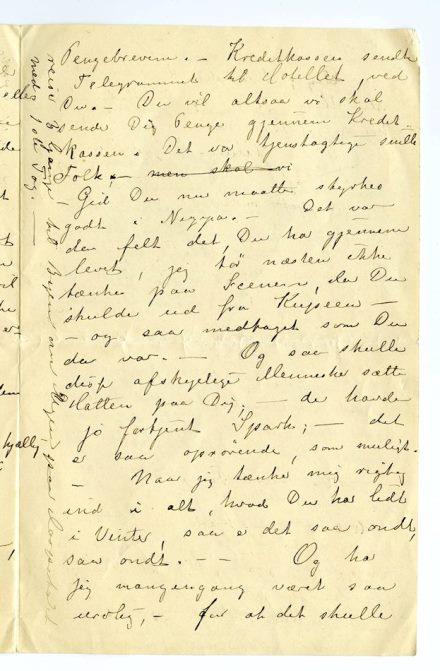 Pengebrevene. – Kreditkassen sendte
Telegrammet til Hotellet, ved
Du. – Du vil altsaa vi skal
sende Dig Penge gjennem Kredit-
kassen. Det var tjenstagtige snille
Folk, – men skal vi
Gid Du nu maatte styrkes
godt i Nizza. – Det var
den felt det, Du har gjennem
levet, jeg tør næsten ikke
tænke paa Scenen, da Du
skulde ud fra Kupeen –
– og saa medtaget som Du
da var. – Og saa skulle
disse afskyelige Mennesker sætte
Hatten paa Dig; – de havde
jo fortjent Spark; – det
er saa oprørende, som muligt.
– Naar jeg tænker mig rigtig
ind i alt, hvad Du har lidt
i Vinter, saa e det saa ondt,
saa ondt. – – Og har
jeg mangengang været saa
urolig, – for at det skulle
reise 3 Gange til Byen om Ugen, paa
med 10 Tog. –